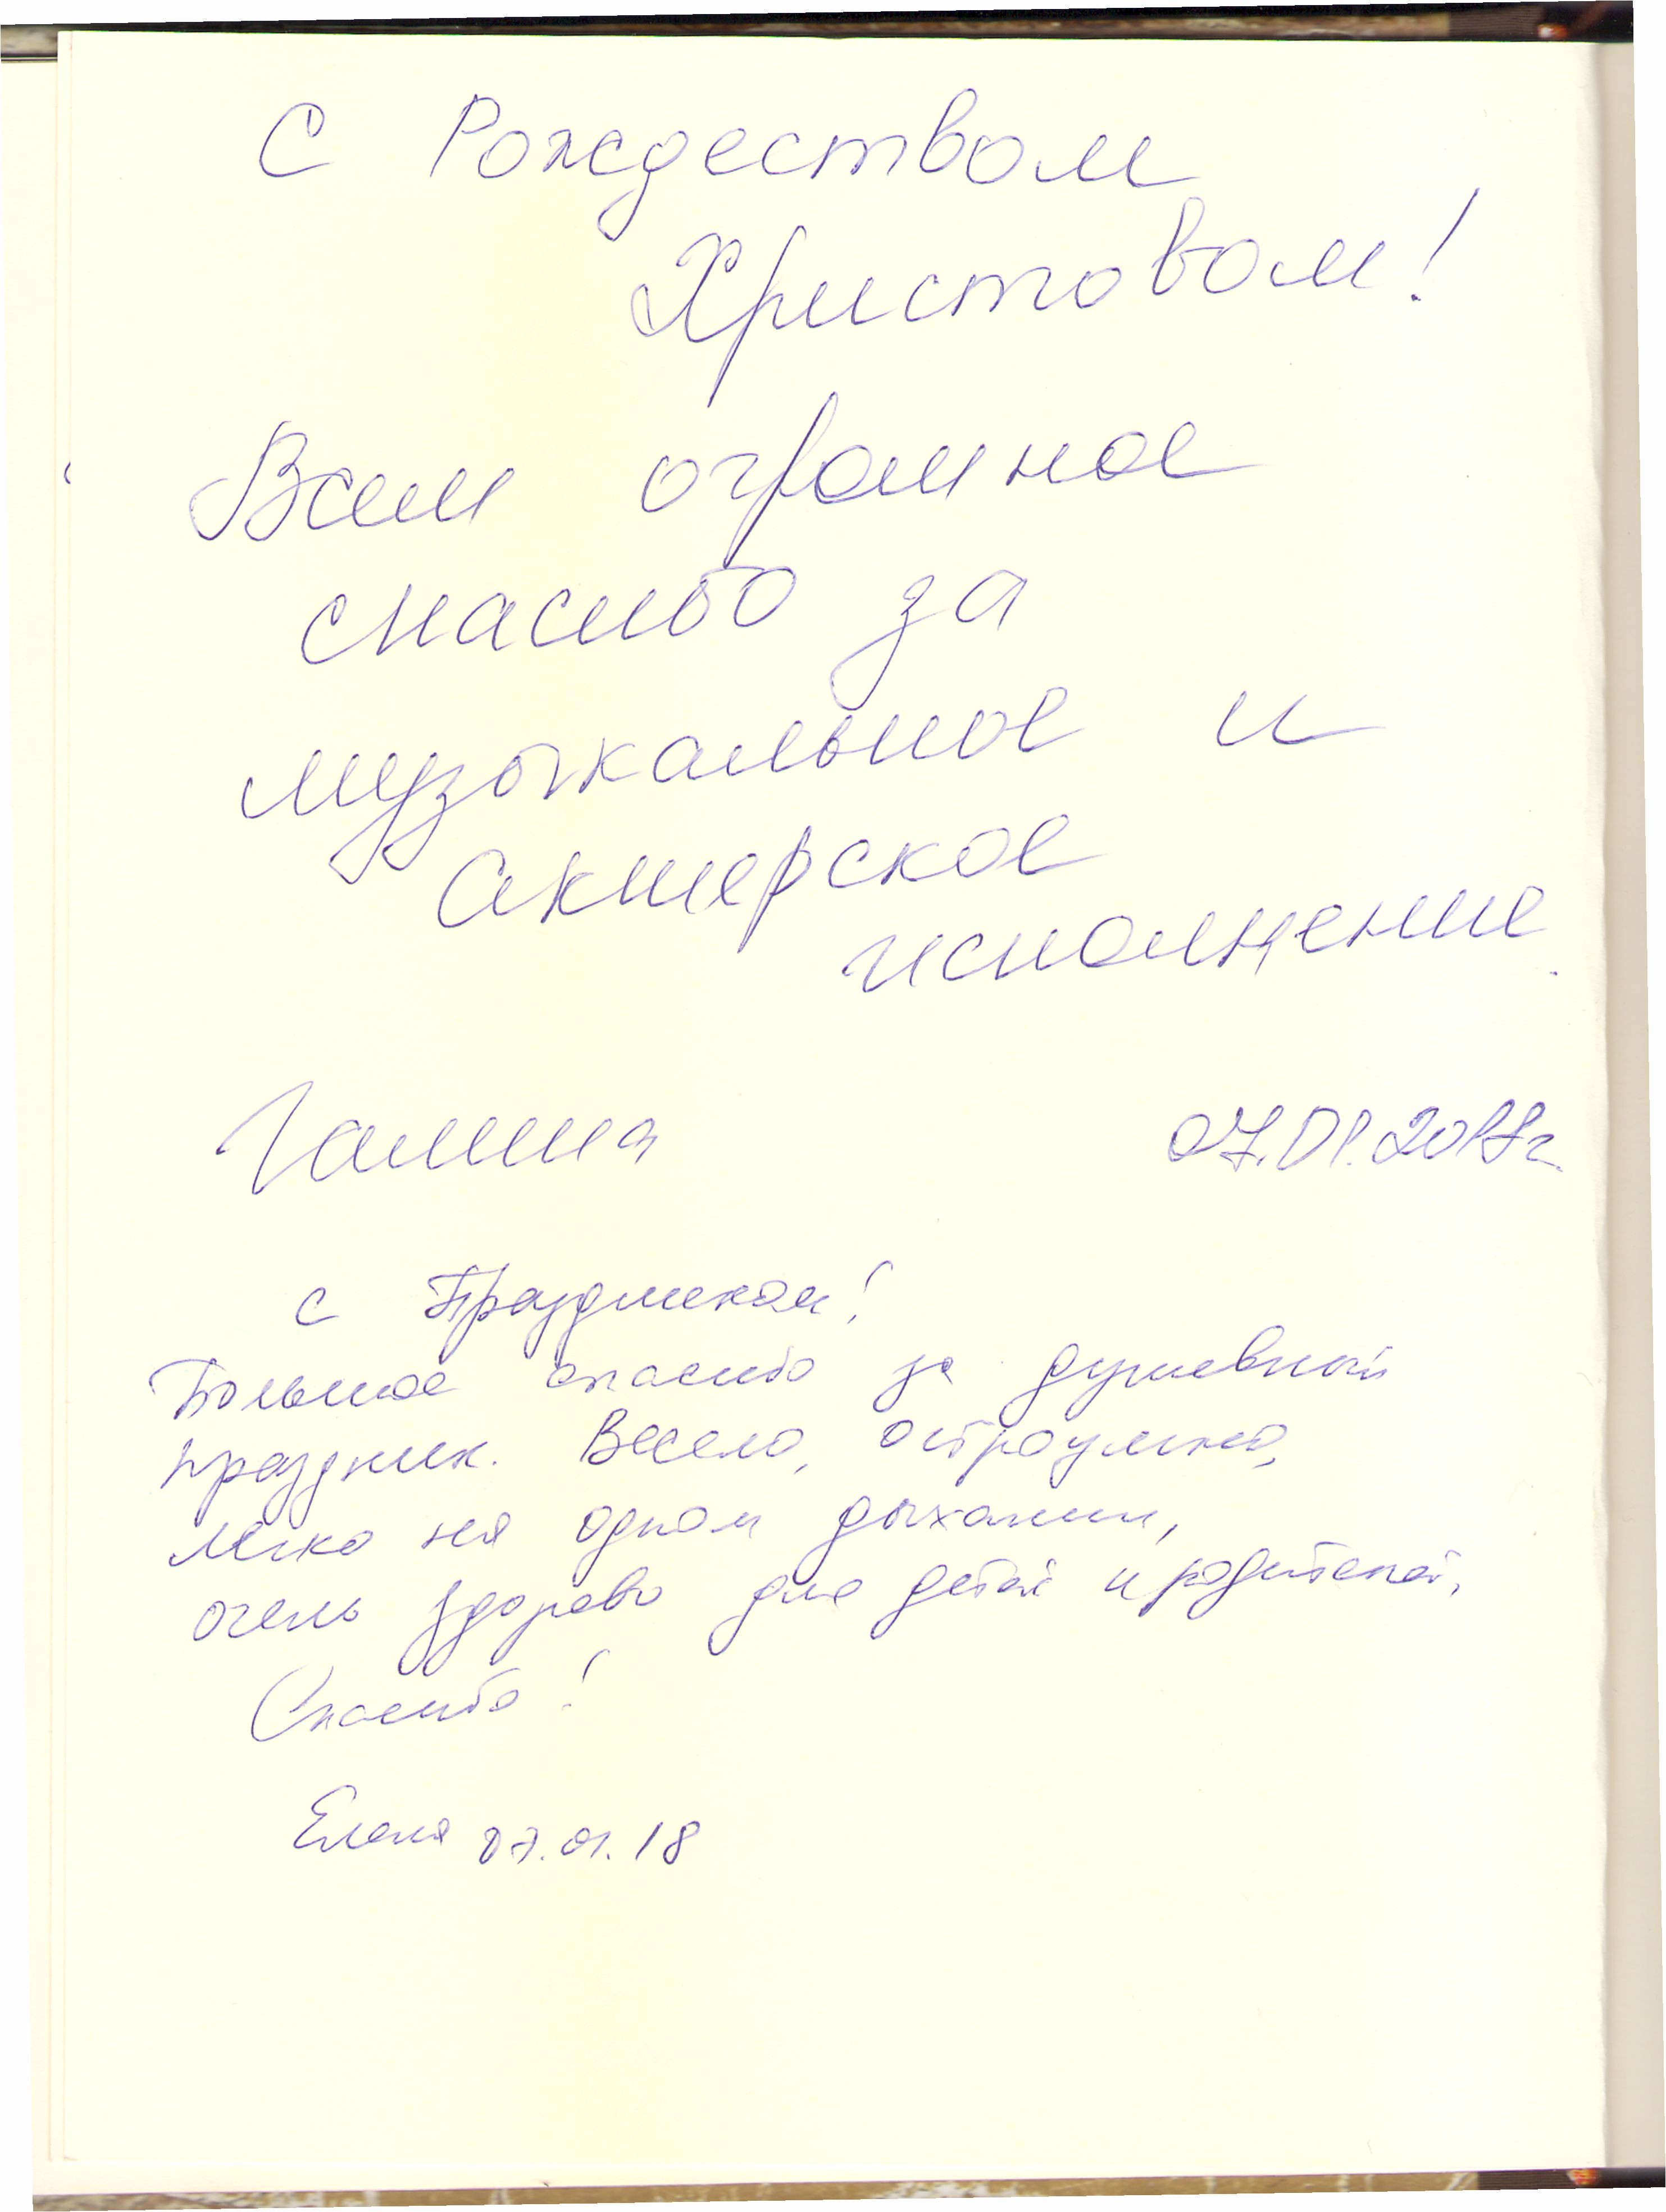 С Рождеством
Христовом!
Всем огромное
спасибо за
музыкальное и
актерское
исполнение.
Галина 07.01.2018г.
С Праздником!
Большое спасибо за душевный
праздник. Весело, остроумно,
легко на одном дыхании,
очень здорово для детей и родителей.
Спасибо!
Елена 07.01.18